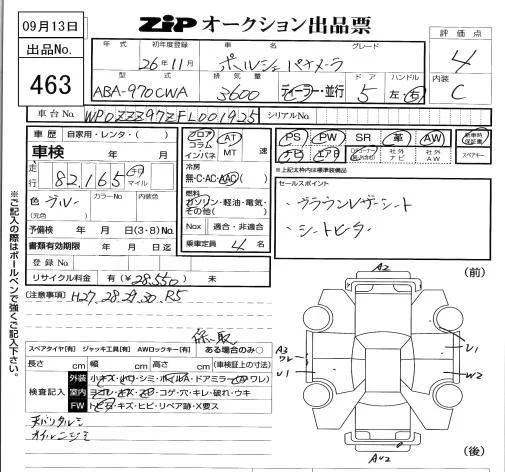 09月13日
出品No.
463
ZIP オークション出品票
評価点
4
内装
C
年式 初年度登録 車名 グレード
26年11月 ポルシェパナメーラ
型式 排気量 ドア ハンドル
ABA-970CWA 3600 ディーラー・並行 5 左・右
車台No. WP0ZZZ97ZFL001925 シリアルNo.
車歴 自家用・レンタ・( )
車検 年 月
走行 82,165 マイル
色 ブルー カラーNo. 内装色
(元色)
予備検 年 月 日(3・8)No.
書類有効期限 年 月 日迄
登録No.
リサイクル料金 有(¥28,550) 未
フロア
コラム
インパネ
AT
MT 速
冷房
無・C・AC・AAC( )
燃料
ガソリン・軽油・電気・
その他( )
Nox 適合・非適合
乗車定員 4 名
PS PW SR 革 AW
ナビ エアB 社外ナビ 社外AW
新車時保証書
スペアキー
※上記太枠内は標準装備品
セールスポイント
・ブラウンレザーシート
・シートヒーター
[注意事項] H27,28,29,30,R5
保、取
スペアタイヤ[有] ジャッキ工具[有] AWロックキー[有] ある場合のみ○
長さ cm 幅 cm 高さ cm (車検証上の寸法)
検査記入
外装 小キズ・凹・シミ・ホイルA・ドアミラー(A・ワレ)
室内 ヨゴレ・キズ・スレ・コゲ・穴・キレ・破れ・ウキ
FW トビA・キズ・ヒビ・リペア跡・X要ス
天バリタルミ
オイルニジミ
(前)
A2
A3
ワレ
U1
U1
W2
A U2
(後)
※ご記入の際はボールペンで強くご記入下さい。